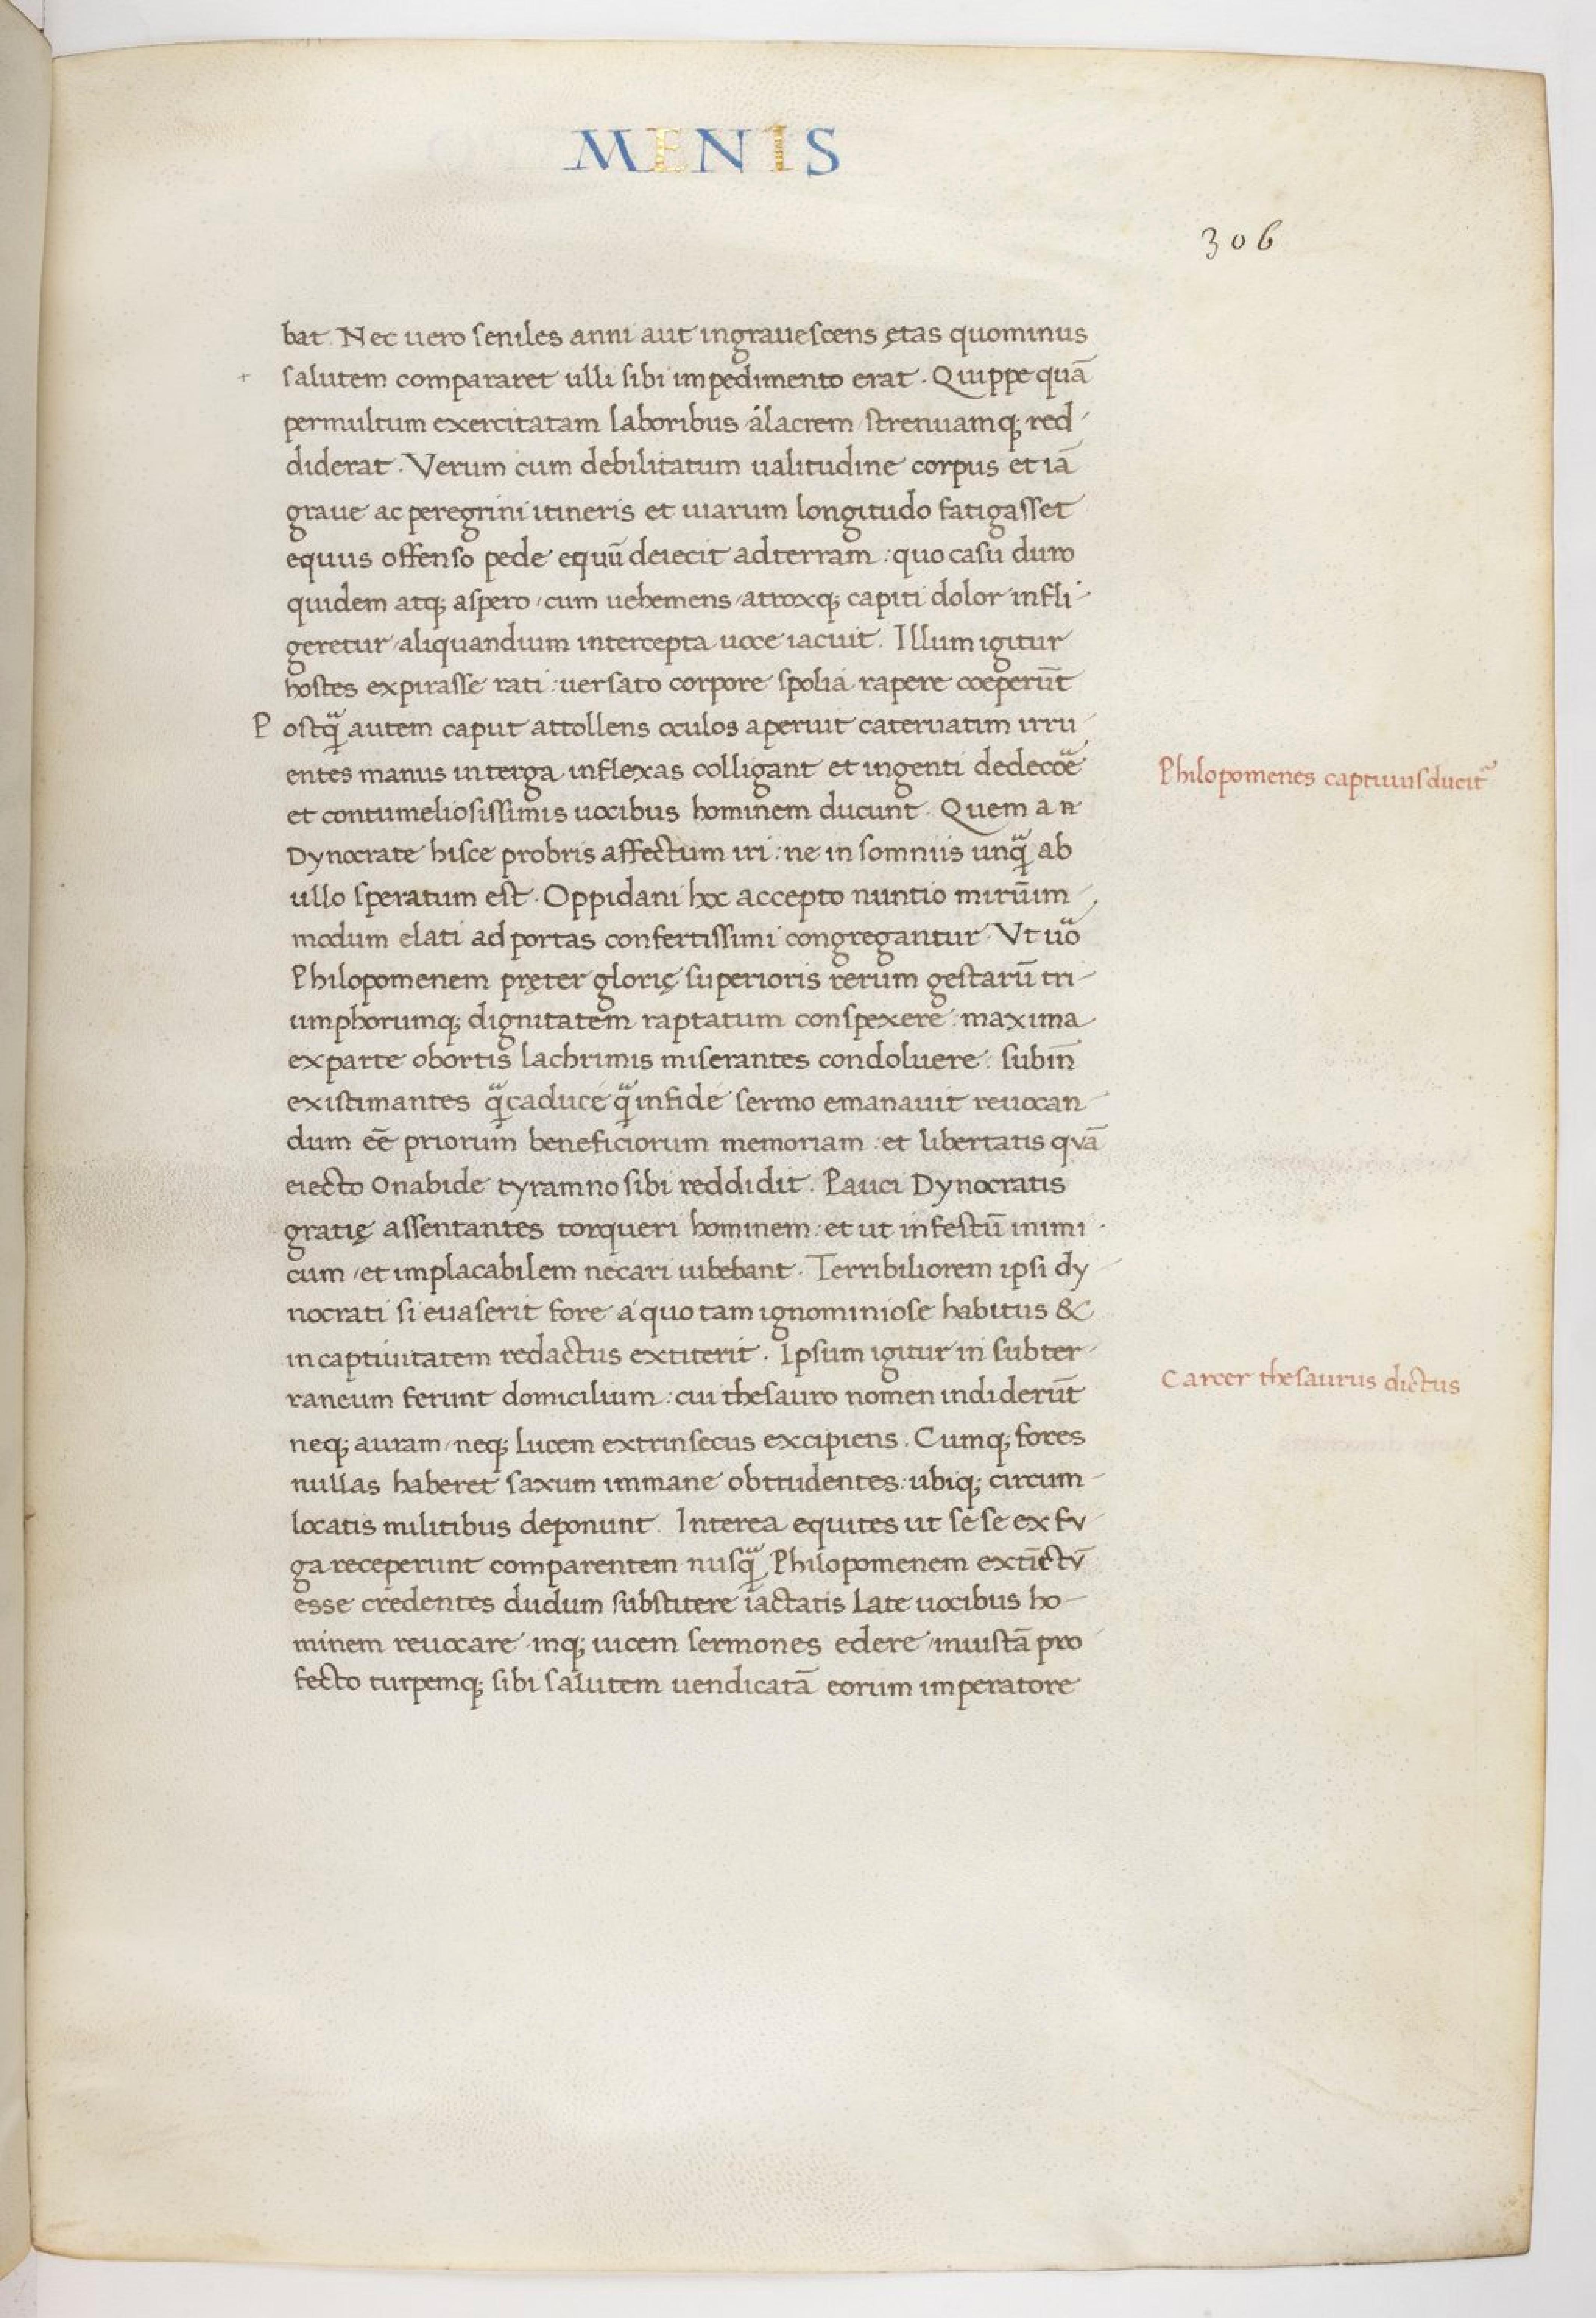 MENIS
306
bat. Nec uero seniles anni aut ingrauescens ętas quominus
+ salutem compararet ulli sibi impedimento erat. Quippe quā
permultum exercitatam laboribus álacrem strenuamq; red-
diderat. Verum cum debilitatum ualitudine corpus et iā
graue ac peregrini itineris et uiarum longitudo fatigasset
equus offenso pede equū deiecit adterram: quo casu duro
quidem atq; aspero, cum uehemens, atroxq; capiti dolor infli-
geretur, aliquandium intercepta uoce iacuit. Illum igitur
hostes expirasse rati: uersato corpore spolia rapere coeperūt
Postqᷓ autem caput attollens oculos aperuit cateruatim irru-
entes manus interga inflexas colligant et ingenti dedecoᷓe
Philopomenes captiuus ducitᷣ
et contumeliosissimis uocibus hominem ducunt. Quem a n
Dynocrate hisce probris affectum iri: ne in somniis unqᷓ ab
ullo speratum est. Oppidani hoc accepto nuntio mirūim
modum elati ad portas confertissimi congregantur. Vt uᷓo
Philopomenem pręter glorię superioris rerum gestarū tri-
umphorumq; dignitatem raptatum conspexere: maxima
exparte obortis lachrimis miserantes condoluere: subin̄
existimantes qᷓ caduce qᷓ infide sermo emanauit reuocan-
dum eē priorum beneficiorum memoriam: et libertatis qvā
eiecto Onabide tyramno sibi reddidit. Pauci Dynocratis
gratię assentantes torqueri hominem: et ut infestū inimi-
cum, et implacabilem necari iubebant. Terribiliorem ipsi dy-
nocrati si euaserit fore á quo tam ignominiose habitus &
incaptiuitatem redactus extiterit. Ipsum igitur in subter-
raneum ferunt domicilium: cui thesauro nomen indiderūt
Carcer thesaurus dictus
neq; auram, neq; lucem extrinsecus excipiens. Cumq; fores
nullas haberet saxum immane obtrudentes: ubiq; circum-
locatis militibus deponunt. Interea equites ut se se ex fv-
ga receperunt comparentem nusqᷓ Philopomenem extīctv̄
esse credentes dudum substitere iactatis late uocibus ho-
minem reuocare inq; uicem sermones edere, iniustā pro
fecto turpemq; sibi salutem uendicatā eorum imperatore